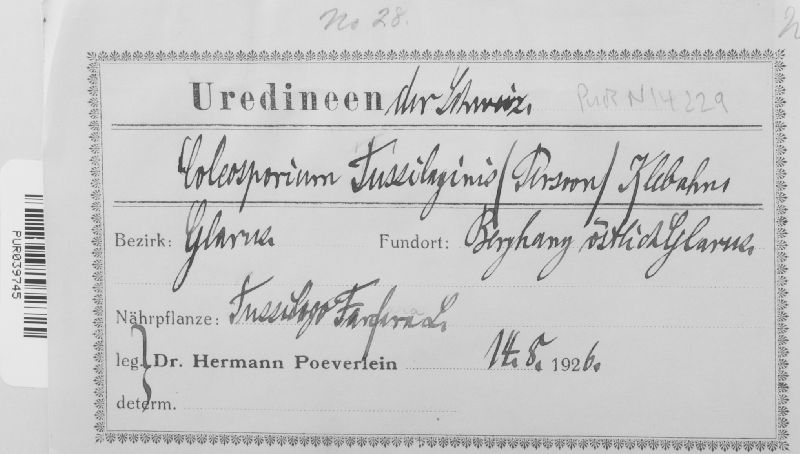 No 28.
Uredineen der Schweiz.
PUR N14229
Coleosporium Tussilaginis (Persoon) Klebahn.
Bezirk: Glarus. Fundort: Berghang östlich Glarus.
Nährpflanze: Tussilago Farfara L.
leg. Dr. Hermann Poeverlein 14. 8. 1926.
determ.
PUR039745